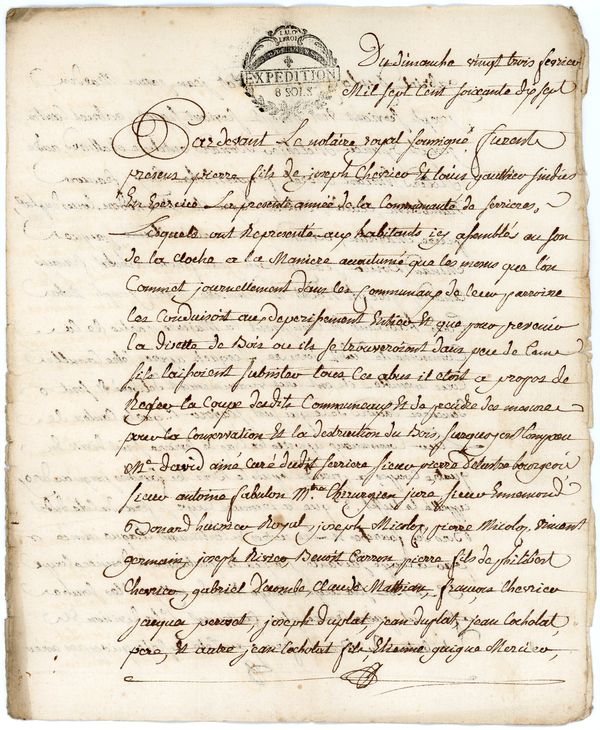 EXPEDITION
8 SOLS
Du dimanche vingt trois fevrier
Mil sept Cent soixante dix sept
Par devant Le notaire royal soussigné furent
presens pierre fils de joseph Chevrier Et louis gauthier sindics
En Exercice La presente année de la Communauté de serrieres,
Lesquels ont Representé aux habitants ici assemblés au son
de la cloche a la Maniere accoutumé que les
Commet journellement dans les Communaux de
les Conduisoit au deperissement Entier Et que pour prevenir
la disette de Bois ou ils se trouveroient dans peu de tems
s'ils laissoient subsister tous Ces abus il etoit a propos de
Regler la Coupe desdits Communeaux Et de prendre des mesures
pour la Conservation Et la destruction du Bois, surquoy ont Comparu
Mr. david ainé Curé dudit serriere sieur pierre bourgeois
sieur antoine sabulon Mtre Chirurgien juré sieur Ennemond
Bonard huissier Royal, joseph Micoloz, pierre Micoloz, vincent
germain, joseph Benoit Carron pierre fils de philibert
Chevrier, gabriel Claude Mathian, françois Chevrier
jacques pernet, joseph duplat, jean duplat, jean Cocholat,
pere, Et autre jean Cocholat fils, Etienne guigue Mercier,